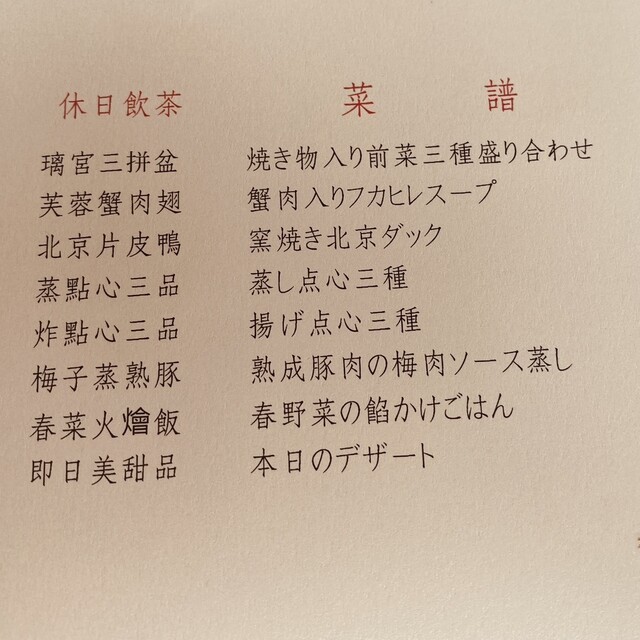 休日飲茶 菜譜
璃宮三拼盆 焼き物入り前菜三種盛り合わせ
芙蓉蟹肉翅 蟹肉入りフカヒレスープ
北京片皮鴨 窯焼き北京ダック
蒸點心三品 蒸し点心三種
炸點心三品 揚げ点心三種
梅子蒸熟豚 熟成豚肉の梅肉ソース蒸し
春菜火燴飯 春野菜の餡かけごはん
即日美甜品 本日のデザート